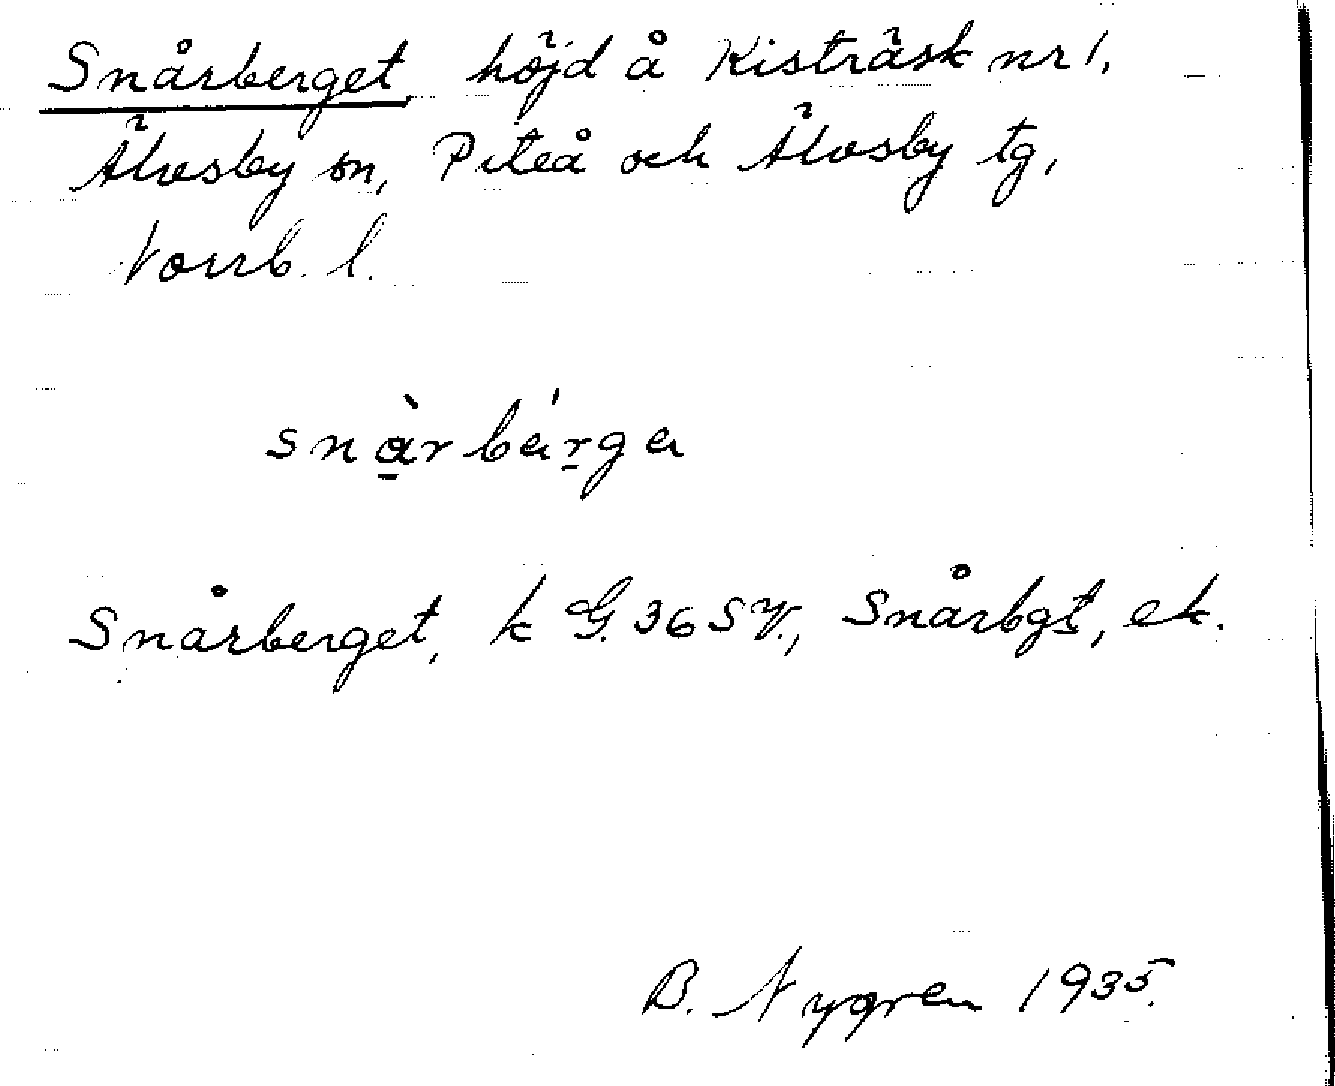 Snårberget, höjd å Kisträsk nr 1,
Älvsby sn, Piteå och Älvsby tg,
Norrb. l.
snàrbárga
Snårberget, k G. 36 S V., Snårbgt, ek.
B. Nygren 1935.